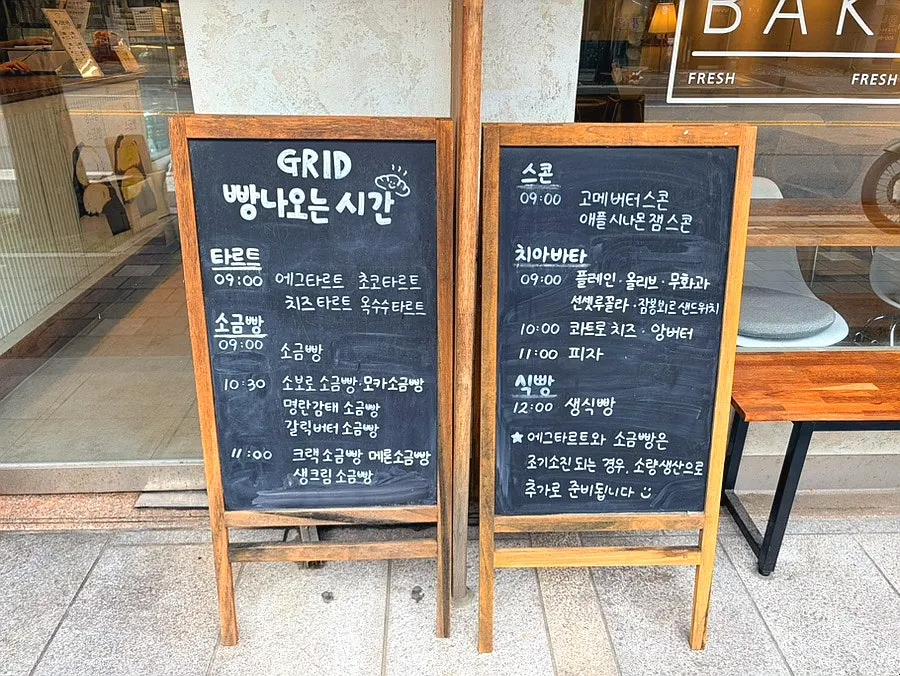 GRID
빵나오는 시간
타르트
09:00 에그타르트 초코타르트
치즈타르트 옥수수타르트
소금빵
09:00 소금빵
10:30 소보로 소금빵·모카소금빵
명란감태 소금빵
갈릭버터 소금빵
11:00 크랙 소금빵 메론소금빵
생크림 소금빵
스콘
09:00 고메버터스콘
애플시나몬 잼스콘
치아바타
09:00 플레인·올리브·무화과
선셋루꼴라·잠봉뵈르샌드위치
10:00 콰트로치즈·앙버터
11:00 피자
식빵
12:00 생식빵
★에그타르트와 소금빵은
조기소진 되는 경우, 소량생산으로
추가로 준비됩니다
BAK
FRESH FRESH